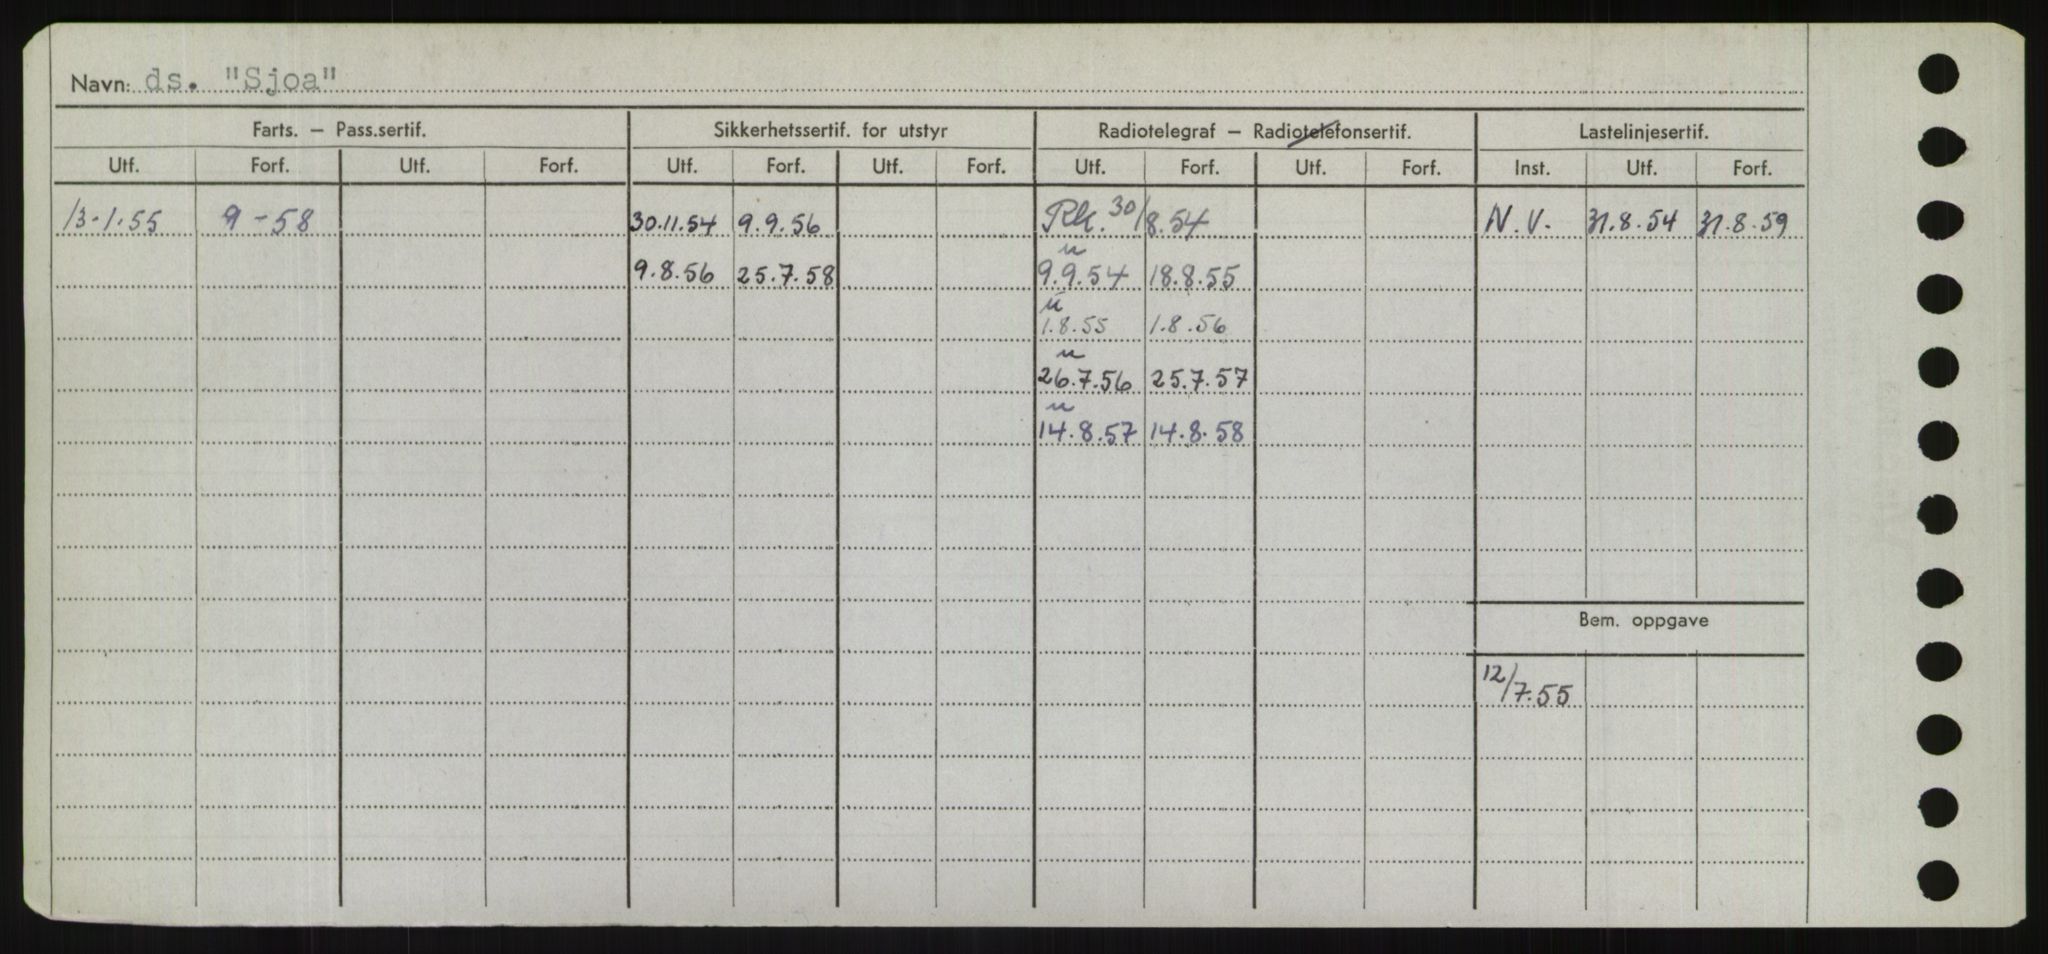 Navn: ds. "Sjoa"
Farts. – Pass.sertif. Sikkerhetssertif. for utstyr Radiotelegraf – Radiotelefonsertif. Lastelinjesertif.
Utf. Forf. Utf. Forf. Utf. Forf. Utf. Forf. Utf. Forf. Utf. Forf. Inst. Utf. Forf.
13.1.55 9-58 30.11.54 9.9.56 Rk. 30/8.54 N.V. 31.8.54 31.8.59
u
9.8.56 25.7.58 9.9.54 18.8.55
u
1.8.55 1.8.56
u
26.7.56 25.7.57
u
14.8.57 14.8.58
Bem. oppgave
12/7.55